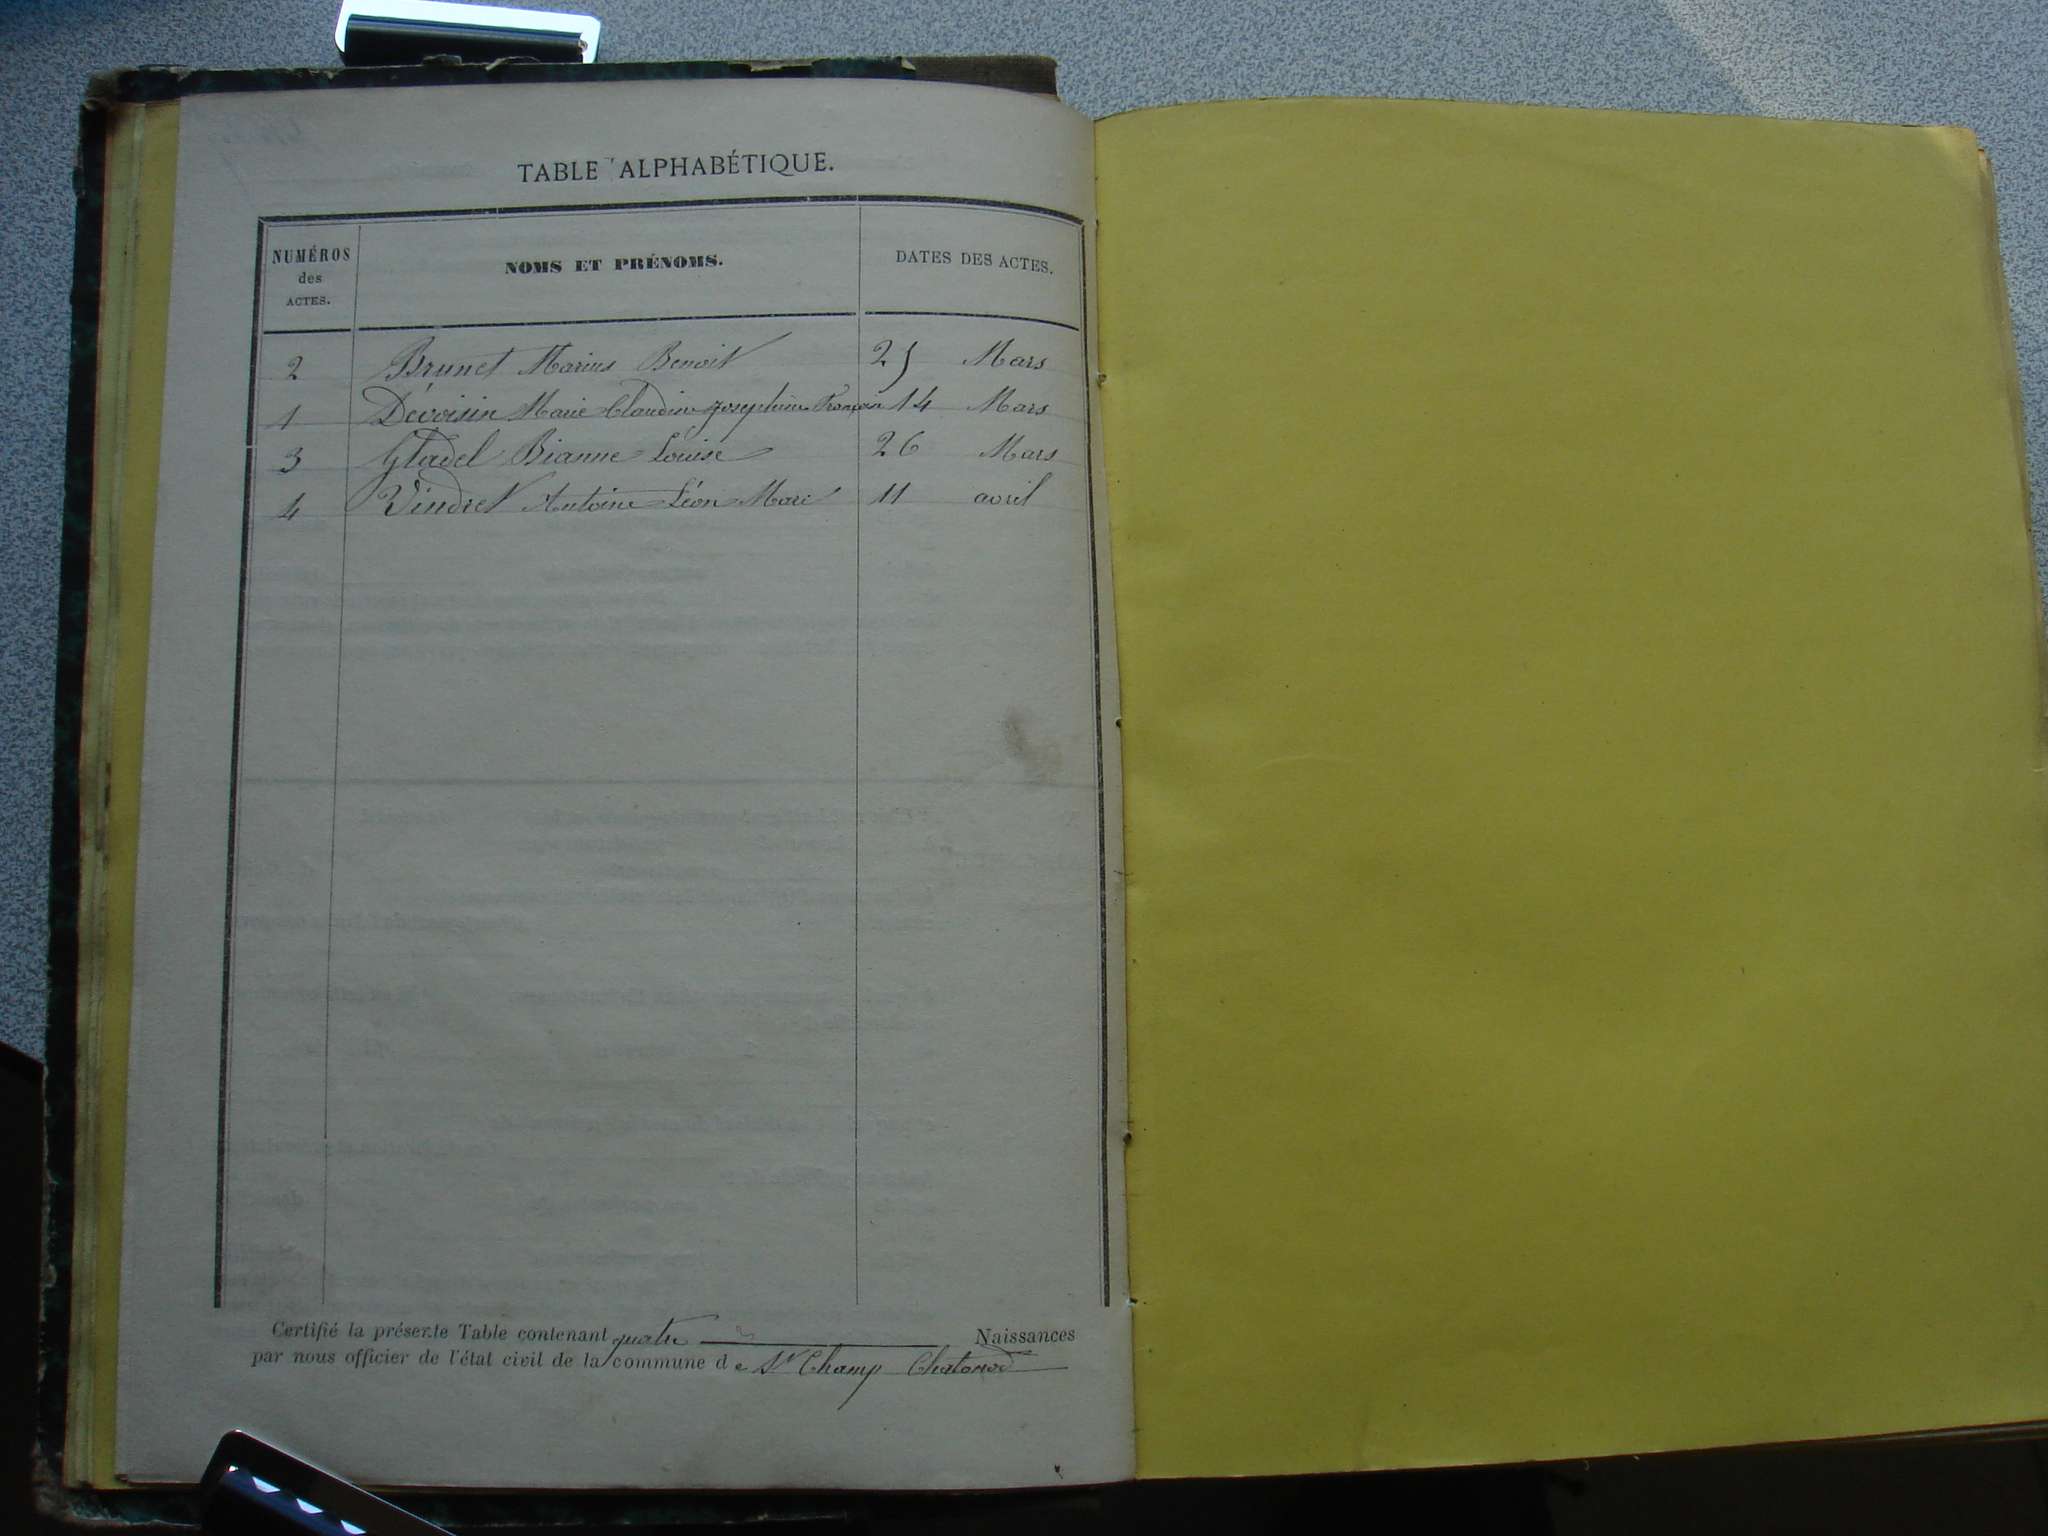 TABLE ALPHABÉTIQUE.
NUMÉROS des ACTES. NOMS ET PRÉNOMS. DATES DES ACTES.
2 Brunet Marius Benoit 25 Mars
1 Dévoisin Marie Claudine Joséphine 14 Mars
3 Gladel Louise 26 Mars
4 Vindret Antoine Léon Marie 11 avril
Certifié la présente Table contenant quatre Naissances
par nous officier de l'état civil de la commune de St Champ Chatonod